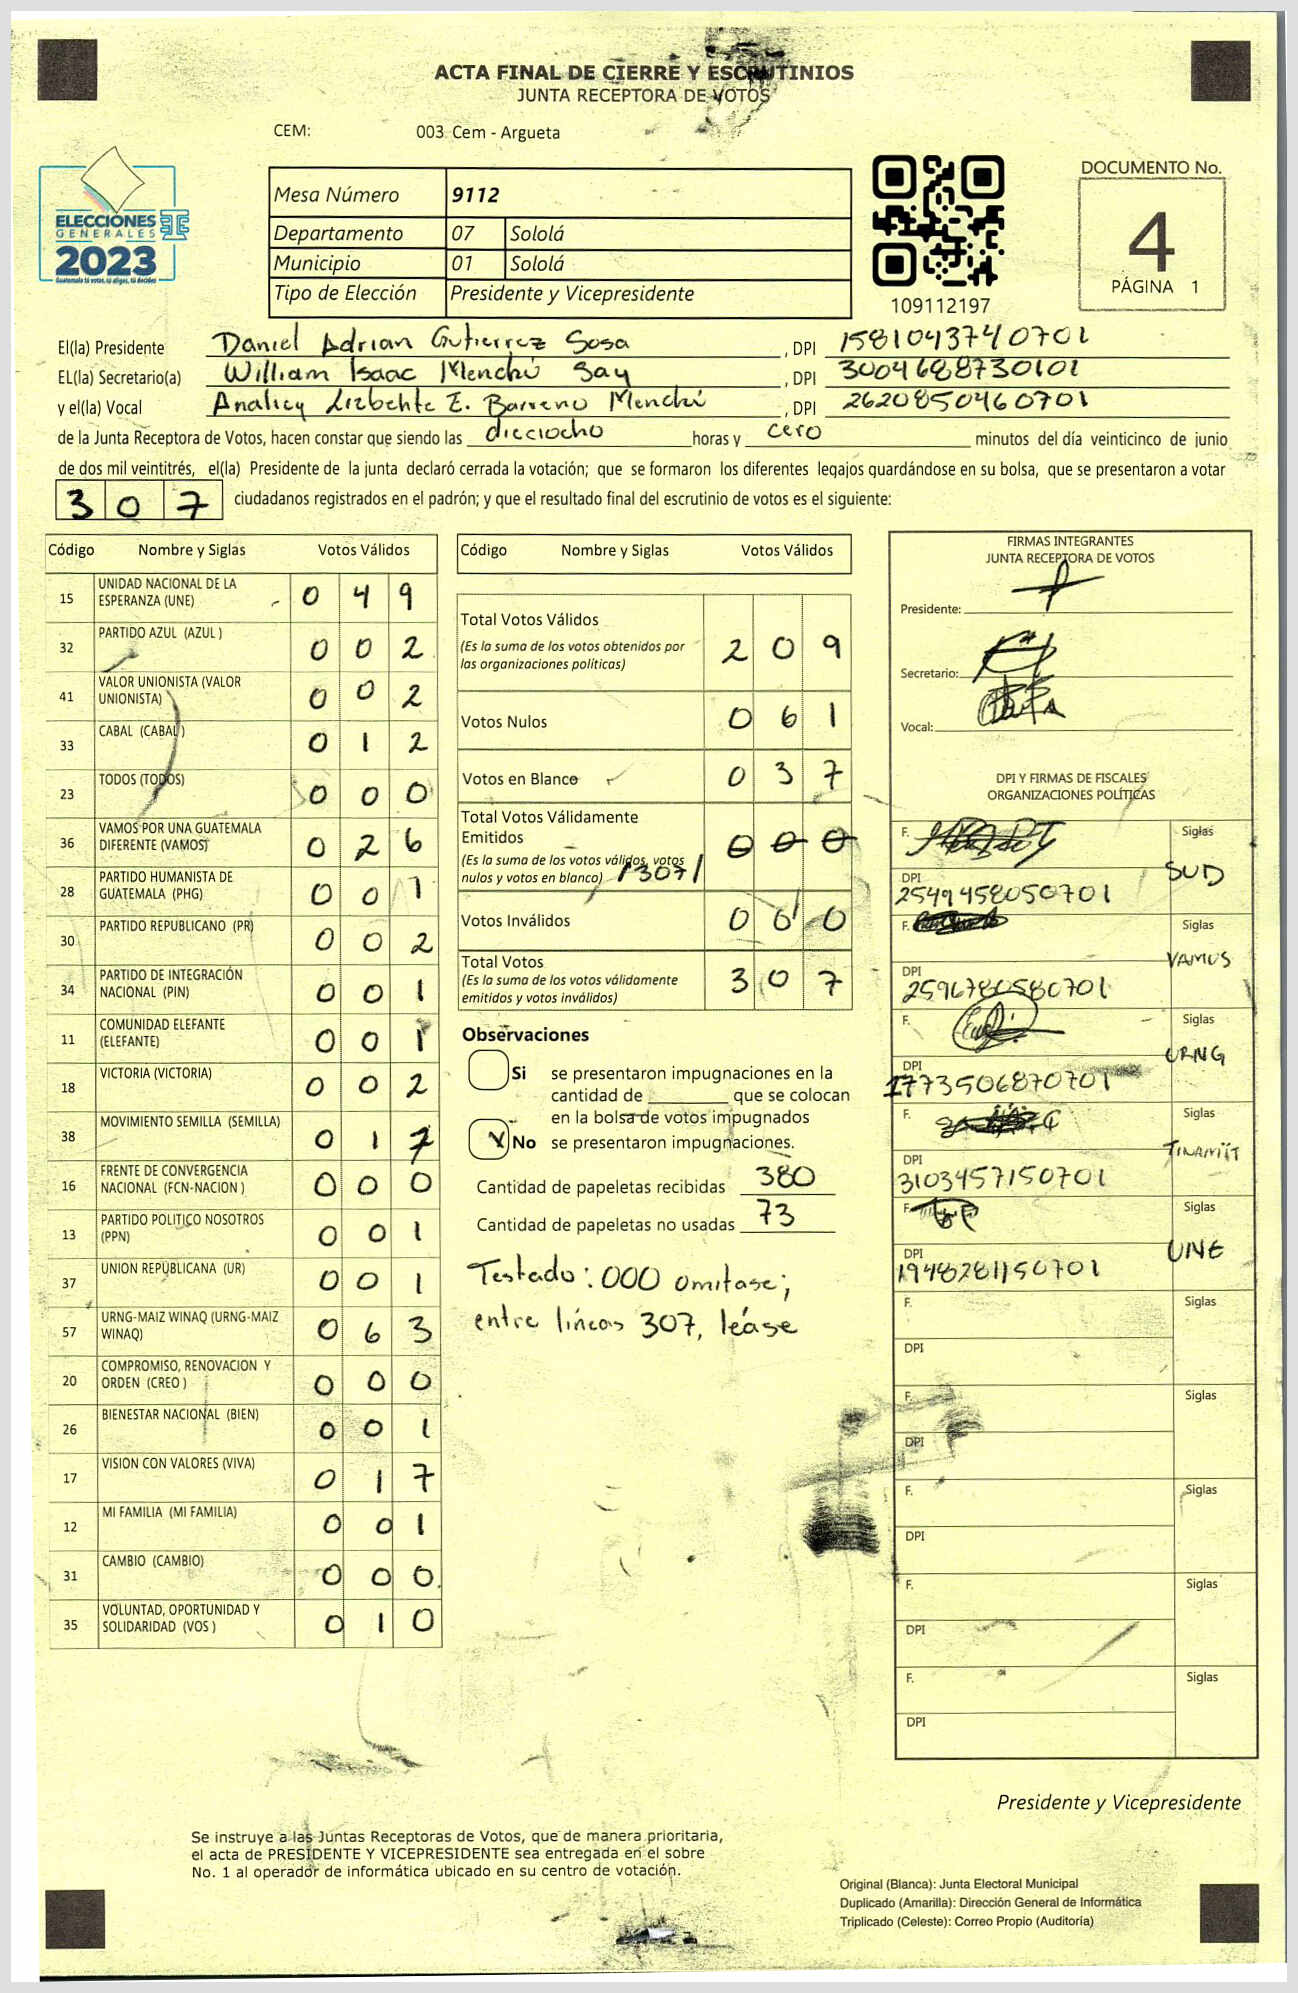 ACTA FINAL DE CIERRE Y ESCRUTINIOS
JUNTA RECEPTORA DE VOTOS
CEM: 003 Cem - Argueta
ELECCIONES
GENERALES
2023
Guatemala tú votas, tú eliges, tú decides
Mesa Número 9112
Departamento 07 Sololá
Municipio 01 Sololá
Tipo de Elección Presidente y Vicepresidente
109112197
DOCUMENTO No.
4
PÁGINA 1
El(la) Presidente Daniel Adrian Gutierrez Sosa, DPI 1581043740701
EL(la) Secretario(a) William Isaac Menchú Say, DPI 3004688730101
y el(la) Vocal Analicy Lizbehte E. Barreno Menchú, DPI 2620850460701
de la Junta Receptora de Votos, hacen constar que siendo las dieciocho horas y cero minutos del día veinticinco de junio
de dos mil veintitrés, el(la) Presidente de la junta declaró cerrada la votación; que se formaron los diferentes legajos guardándose en su bolsa, que se presentaron a votar
307 ciudadanos registrados en el padrón; y que el resultado final del escrutinio de votos es el siguiente:
Código Nombre y Siglas Votos Válidos
15 UNIDAD NACIONAL DE LA ESPERANZA (UNE) 0 4 9
32 PARTIDO AZUL (AZUL ) 0 0 2
41 VALOR UNIONISTA (VALOR UNIONISTA) 0 0 2
33 CABAL (CABAL ) 0 1 2
23 TODOS (TODOS) 0 0 0
36 VAMOS POR UNA GUATEMALA DIFERENTE (VAMOS) 0 2 6
28 PARTIDO HUMANISTA DE GUATEMALA (PHG) 0 0 1
30 PARTIDO REPUBLICANO (PR) 0 0 2
34 PARTIDO DE INTEGRACIÓN NACIONAL (PIN) 0 0 1
11 COMUNIDAD ELEFANTE (ELEFANTE) 0 0 1
18 VICTORIA (VICTORIA) 0 0 2
38 MOVIMIENTO SEMILLA (SEMILLA) 0 1 7
16 FRENTE DE CONVERGENCIA NACIONAL (FCN-NACION ) 0 0 0
13 PARTIDO POLITICO NOSOTROS (PPN) 0 0 1
37 UNION REPUBLICANA (UR) 0 0 1
57 URNG-MAIZ WINAQ (URNG-MAIZ WINAQ) 0 6 3
20 COMPROMISO, RENOVACION Y ORDEN (CREO ) 0 0 0
26 BIENESTAR NACIONAL (BIEN) 0 0 1
17 VISION CON VALORES (VIVA) 0 1 7
12 MI FAMILIA (MI FAMILIA) 0 0 1
31 CAMBIO (CAMBIO) 0 0 0
35 VOLUNTAD, OPORTUNIDAD Y SOLIDARIDAD (VOS ) 0 1 0
Código Nombre y Siglas Votos Válidos
Total Votos Válidos 2 0 9
(Es la suma de los votos obtenidos por
las organizaciones políticas)
Votos Nulos 0 6 1
Votos en Blanco 0 3 7
Total Votos Válidamente
Emitidos 0 0 0
(Es la suma de los votos válidos, votos
nulos y votos en blanco) /307/
Votos Inválidos 0 0 0
Total Votos 3 0 7
(Es la suma de los votos válidamente
emitidos y votos inválidos)
Observaciones
Si se presentaron impugnaciones en la
cantidad de ________ que se colocan
en la bolsa de votos impugnados
X No se presentaron impugnaciones.
Cantidad de papeletas recibidas 380
Cantidad de papeletas no usadas 73
Testado: 000 omitase;
entre líneas 307, léase
FIRMAS INTEGRANTES
JUNTA RECEPTORA DE VOTOS
Presidente:
Secretario:
Vocal:
DPI Y FIRMAS DE FISCALES
ORGANIZACIONES POLÍTICAS
F. Siglas
SUD
DPI
2549458050701
F. Siglas
VAMOS
DPI
2596780580701
F. Siglas
URNG
DPI
1773506870701
F. Siglas
TINAMIT
DPI
3103457150701
F. Siglas
UNE
DPI
1948281150701
F. Siglas
DPI
F. Siglas
DPI
F. Siglas
DPI
F. Siglas
DPI
F. Siglas
DPI
Presidente y Vicepresidente
Se instruye a las Juntas Receptoras de Votos, que de manera prioritaria,
el acta de PRESIDENTE Y VICEPRESIDENTE sea entregada en el sobre
No. 1 al operador de informática ubicado en su centro de votación.
Original (Blanca): Junta Electoral Municipal
Duplicado (Amarilla): Dirección General de Informática
Triplicado (Celeste): Correo Propio (Auditoría)